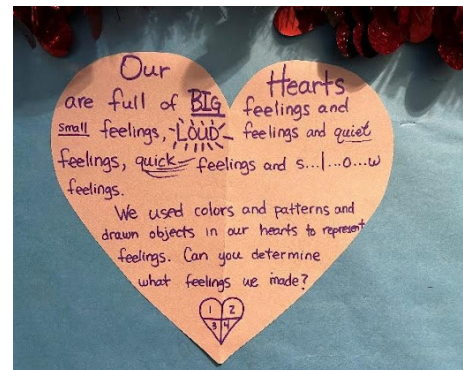 Our Hearts
are full of BIG feelings and
small feelings, -LOUD- feelings and quiet
feelings, quick feelings and s...l...o...w
feelings.
We used colors and patterns and
drawn objects in our hearts to represent
feelings. Can you determine
what feelings we made?
1 2
3 4